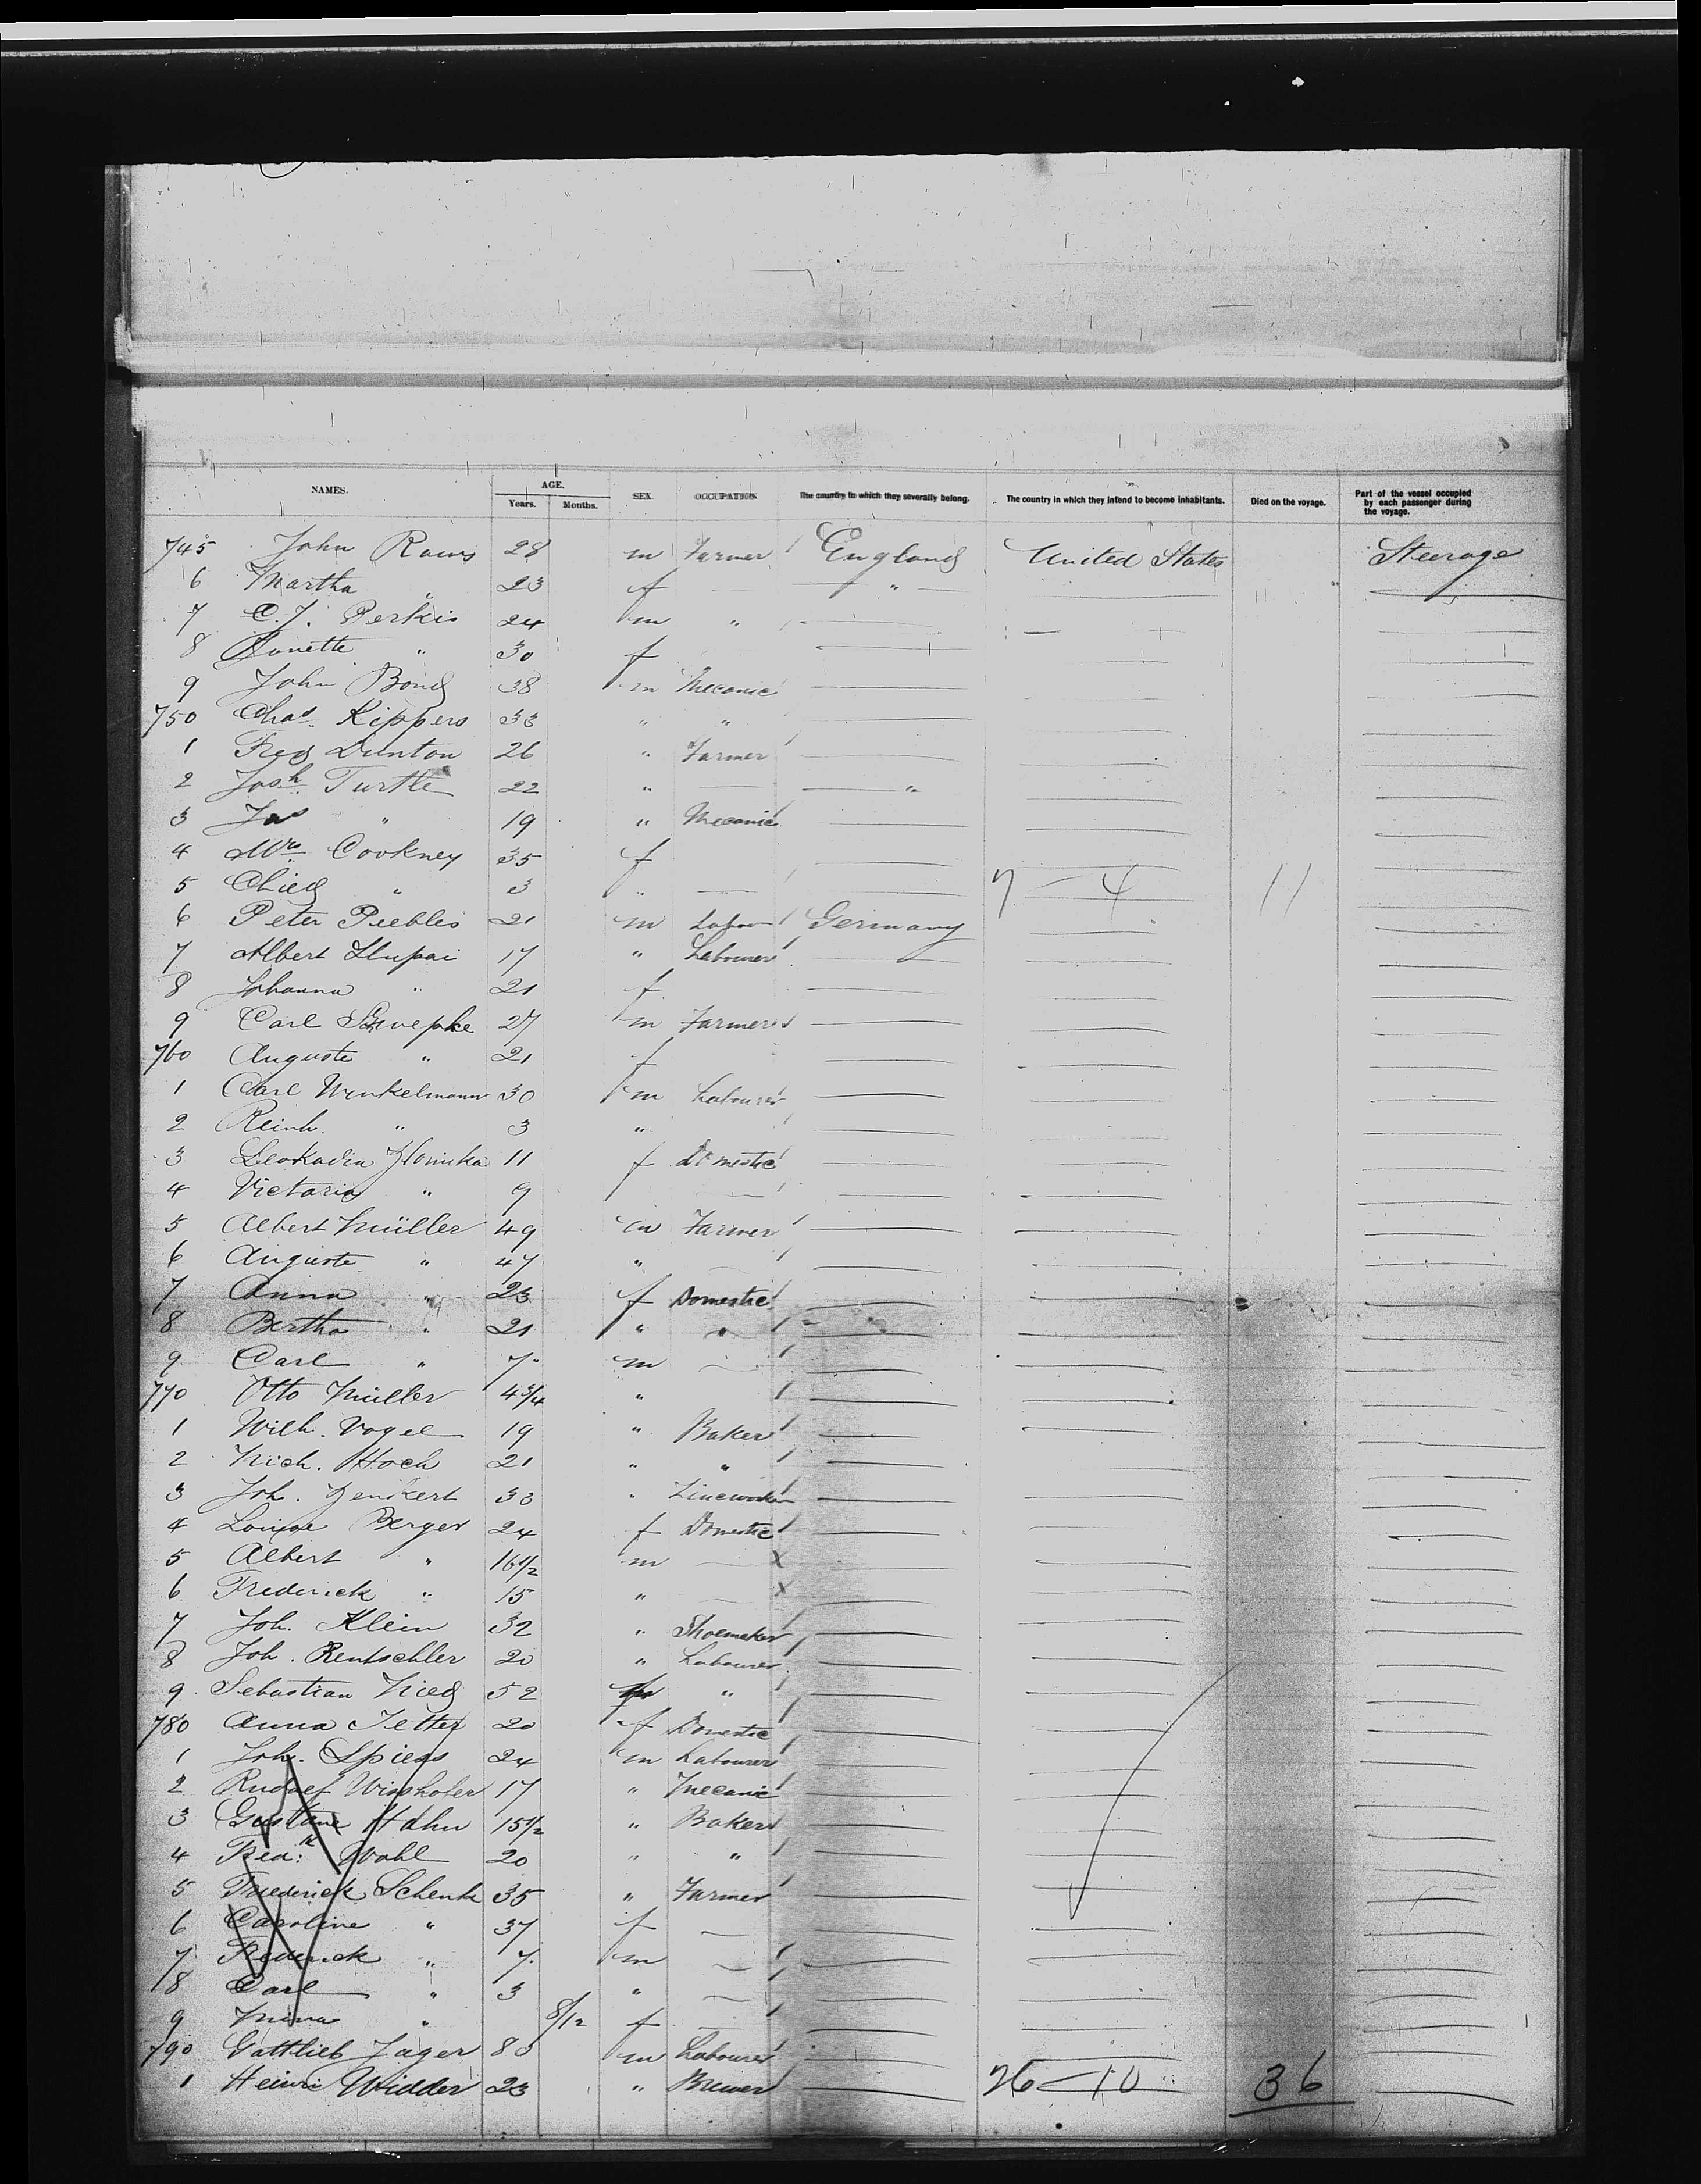 NAMES. AGE. SEX. OCCUPATION The country to which they severally belong. The country in which they intend to become inhabitants. Died on the voyage. Part of the vessel occupied by each passenger during the voyage.
Years. Months.
745 John Raws 28 m Farmer England United States Steerage
6 Martha " 23 f "
7 C. J. Perkis 24 m "
8 " 30 f
9 John Bond 38 m Mecanic
750 Chas. Kippers 33 " "
1 Fred Dunton 26 " Farmer
2 Josh. Turtle 22 " "
3 Jas " 19 " Mecanic
4 Mrs. Cookney 35 f
5 Chied " 3 " 7 – 4 11
6 Peter Peebles 21 m Labour Germany
7 Albert 17 " Labourer
8 Johanna " 21 f
9 Carl 27 m Farmer
760 Auguste " 21 f
1 Carl Winkelmann 30 m Labourer
2 Reinh. " 3 "
3 Leokadia 11 f Domestic
4 Victoria " 9
5 Albert Müller 49 m Farmer
6 Auguste " 47 "
7 Anna " 23 f Domestic
8 Bertha " 21 " "
9 Carl " 7 m
770 Otto Müller 4 3/4 "
1 Wilh. Vogel 19 " Baker
2 Mich. Hoch 21 " "
3 Joh. Zenkert 33 "
4 Louise Berger 24 f Domestic
5 Albert " 16 1/2 m x
6 Frederick " 15 " x
7 Joh. Klein 32 " Shoemaker
8 Joh. Rentschler 20 " Labourer
9 Sebastian 52 m "
780 Anna Jetter 20 f Domestic
1 Joh. Spiess 24 m Labourer
2 Rudolf 17 " Mecanic
3 Gustave Hahn 15 1/2 " Baker
4 Wahl 20 " "
5 Frederick Schenk 35 " Farmer
6 Caroline " 37 f
7 Frederick " 7 m
8 Carl " 3 "
9 Mina " 8/12 f
790 Gottlieb Jager m Labourer
1 Heinri Widder 23 " Brewer 26 – 10 36